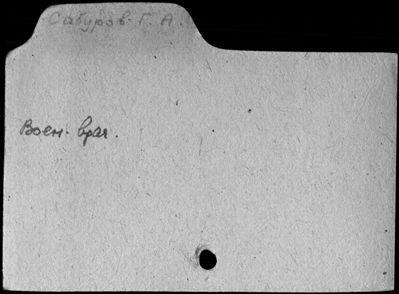 Сабуров Г. А.
Воен. врач.